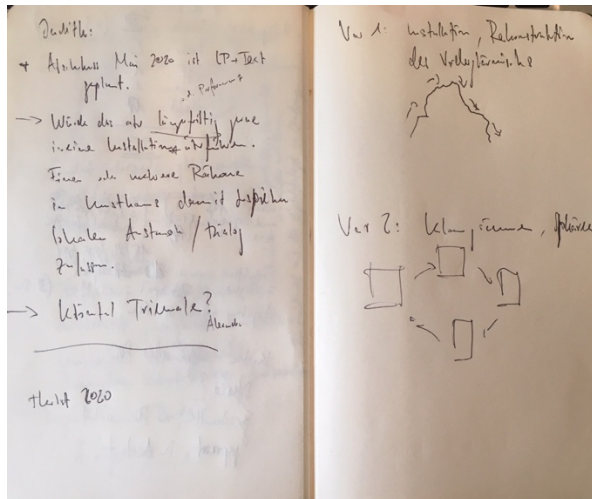 Judith:
+ Abschluss Mai 2020 ist LP + Text
geplant.
& Performance
→ Würde das aber längerfristig gerne
in eine Installation überführen.
Einen oder mehrere Räume
im Kunsthaus damit bespielen
lokalen Austausch / Dialog
zulassen.
→ Klöntal Triennale?
Herbst 2020
Var 1: Installation, Rekonstruktion
des Vrenelisgärtli
Var 2: Klangräume,